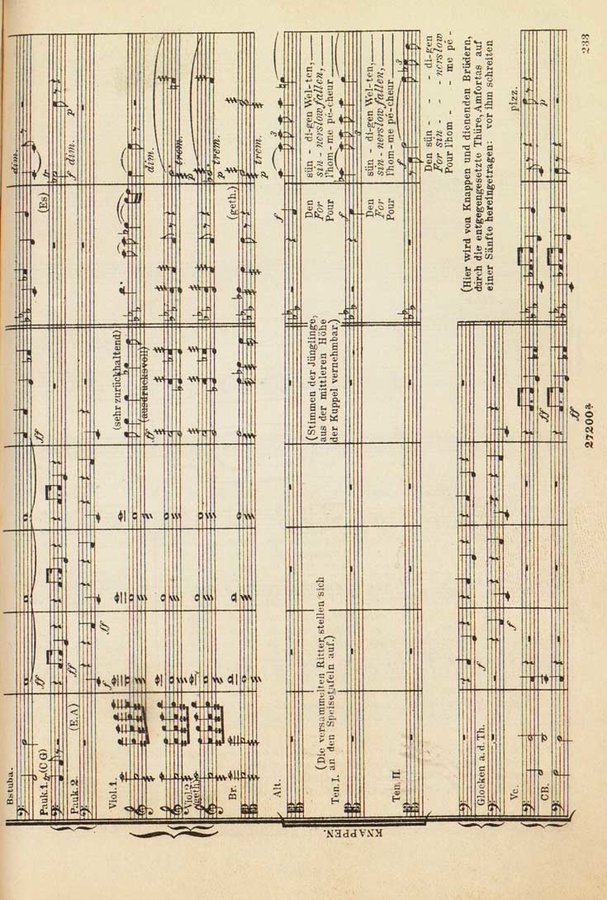 233
Bstuba.
ff
dim.
Pauk.1. (C G)
ff
(Es)
tr
f
dim.
p
Pauk.2.
(E.A)
f
ff
Viol.1.
(sehr zurückhaltend)
(ausdrucksvoll)
ff
dim.
Viol.2.
geth.
trem.
p
trem.
p
Br.
(geth.)
trem.
p
KNAPPEN.
Alt.
f
Den sün - di-gen Wel-ten,
For sin - ners low fallen,
Pour l'hom - me pé-cheur
(Die versammelten Ritter stellen sich
an den Speisetafeln auf.)
(Stimmen der Jünglinge,
aus der mittleren Höhe
der Kuppel vernehmbar.)
Ten. I.
f
Den sün - di-gen Wel-ten,
For sin - ners low fallen,
Pour l'hom - me pé-cheur
Ten. II.
f
Den sün - - - di-gen
For sin - - - ners low
Pour l'hom - - me pé -
(Hier wird von Knappen und dienenden Brüdern,
durch die entgegengesetzte Thüre, Amfortas auf
einer Sänfte hereingetragen: vor ihm schreiten
Glocken a.d.Th.
f
Vc.
f
ff
pizz.
p
CB.
ff
27200a